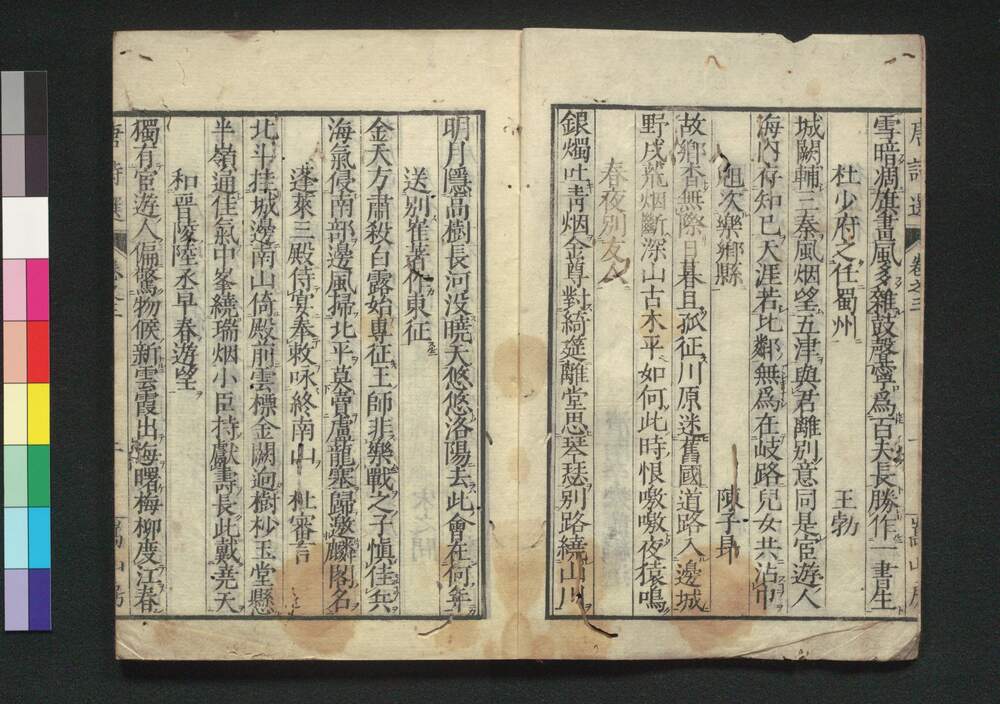 唐詩選 卷之三
雪暗凋旗畫風多雜鼓聲寧爲百夫長勝作一書生
杜少府之任蜀州 王勃
城闕輔三秦風烟望五津與君離別意同是宦遊人
海内存知己天涯若比鄰無爲在岐路兒女共沾巾
晚次樂鄉縣 陳子昂
故鄉杳無際日暮且孤征川原迷舊國道路入邊城
野戍荒烟斷深山古木平如何此時恨噭噭夜猿鳴
春夜別友人
銀燭吐青烟金尊對綺筵離堂思琴瑟別路繞山川
明月隱高樹長河没曉天悠悠洛陽去此會在何年
送別崔著作東征
金天方肅殺白露始專征王師非樂戰之子愼佳兵
海氣侵南部邊風掃北平莫賣盧龍塞歸邀麟閣名
蓬萊三殿侍宴奉敕咏終南山 杜審言
北斗挂城邊南山倚殿前雲標金闕迥樹杪玉堂懸
半嶺通佳氣中峯繞瑞烟小臣持獻壽長此戴堯天
和晋陵陸丞早春遊望
獨有宦遊人偏驚物候新雲霞出海曙梅柳度江春
唐詩選 卷之三